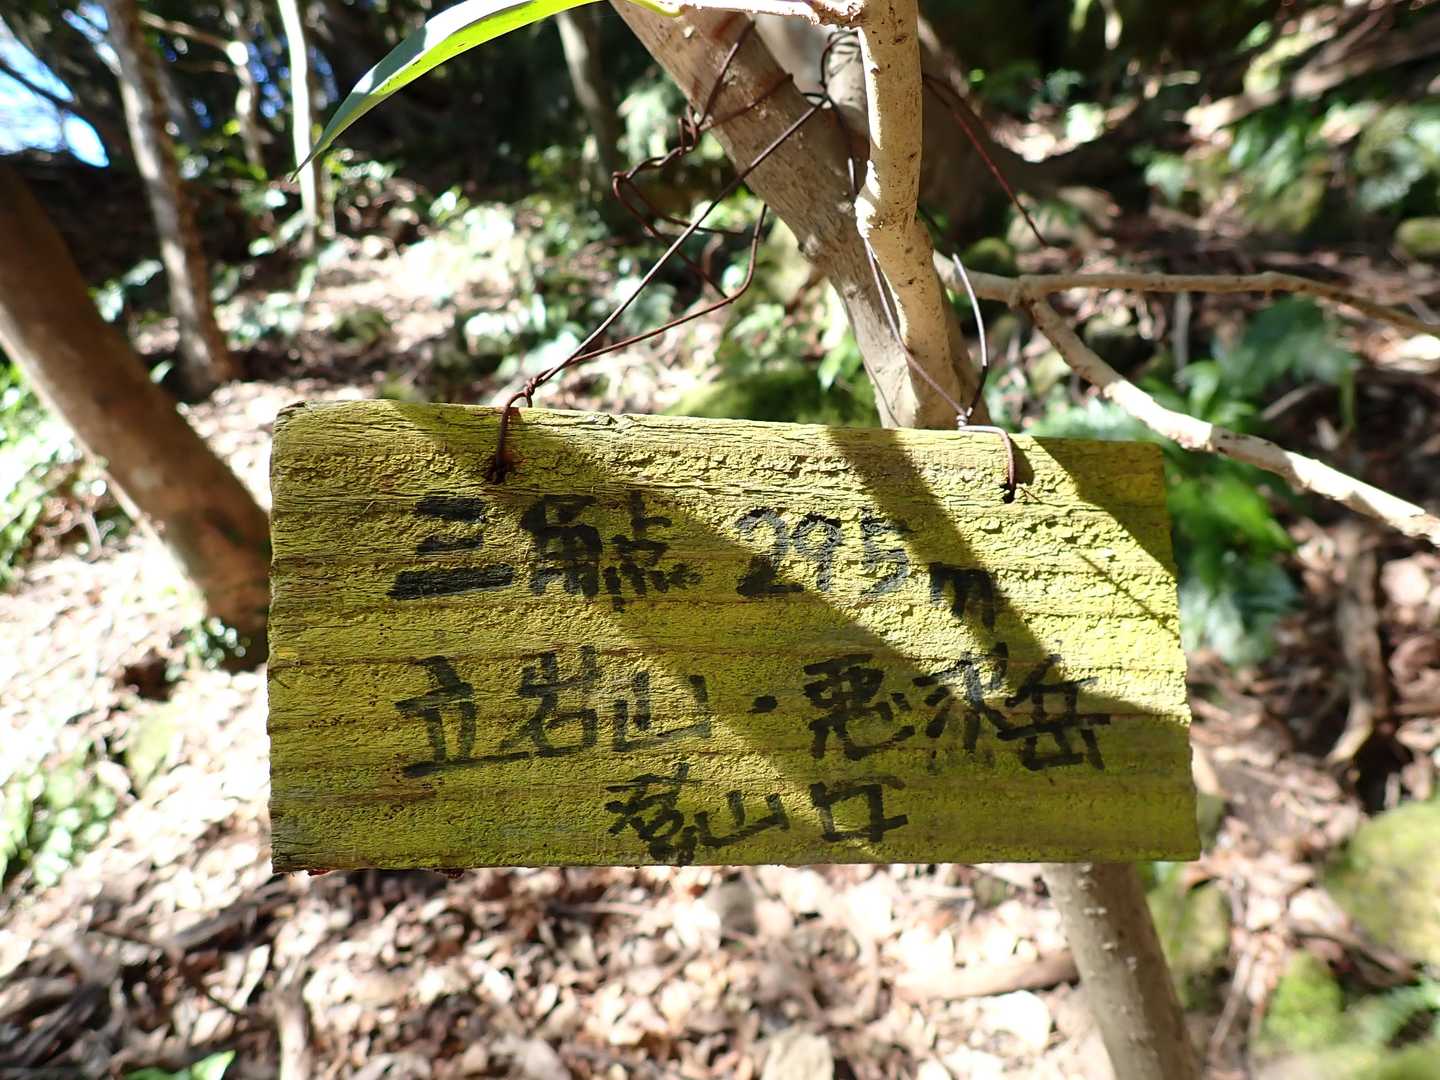 三角点 295m
立岩山・悪沢岳
登山口